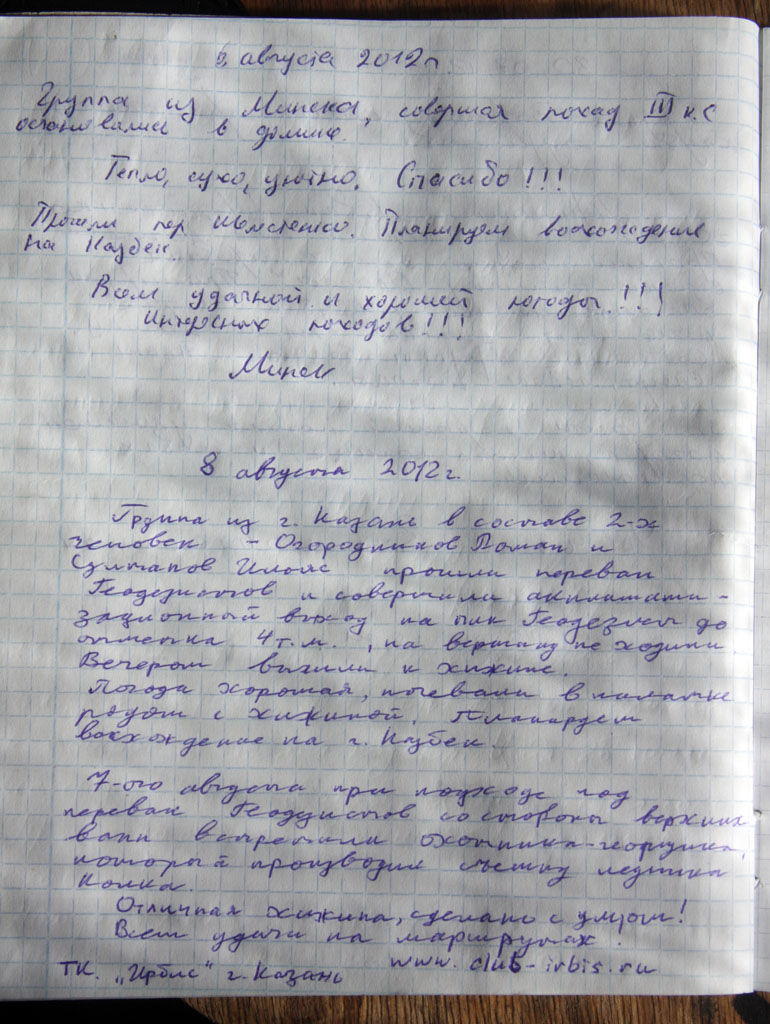 августа 2012г.
Группа из Минска, совершая поход III к.с
остановились в домике.
Тепло, сухо, уютно. Спасибо!!!
Прошли пер. Планируем восхождение
на Казбек.
Всем удачной и хорошей погоды!!!
Интересных походов!!!
Минск
8 августа 2012г.
Группа из г. Казань в составе 2-х
человек - Огородников Роман и
Султанов Ильяс прошли перевал
Геодезистов и совершили акклимати-
зационный выход на пик Геодезист до
отметка 4т.м., на вершину не ходили
Вечером вышли к хижине.
Погода хорошая, ночевали в палатке
рядом с хижиной. Планируем
восхождение на г. Казбек.
7-ого августа при подходе под
перевал Геодезистов со стороны верхних
ванн встретили охотника-геофизика,
который производил съемку ледника
Колка.
Отличная хижина, сделано с умом!
Всем удачи на маршрутах.
ТК. „Ирбис“ г. Казань www.club-irbis.ru